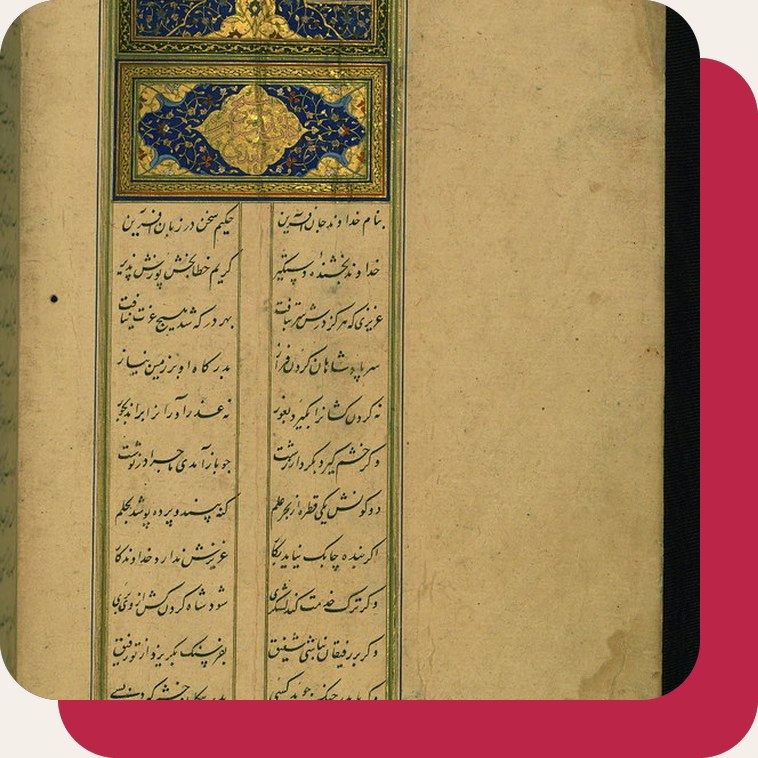 بنام خداوند جان آفرین حکیم سخن در زبان آفرین
خداوند بخشنده دستگیر کریم خطابخش پوزش پذیر
عزیزی که هرکز درش سر بتافت بهر در که شد هیچ عزت نیافت
سر پادشاهان کردن فراز بدرکاه او بر زمین نیاز
نه کردن کشانرا بکیرد بفور نه عذر آورانرا براند بجور
وکر خشم کیرد بکردار زشت چو باز آمدی ماجرا در نوشت
دو کونش یکی قطره از بحر علم کنه بیند و پرده پوشد بحلم
اکر بنده چابک نیاید بکار عزیزش ندارد خداوندکار
وکر ترک خدمت کند لشکری شود شاه کردن کش از وی بری
وکر بر رفیقان نباشی شفیق بفرسنک بکریزد از تو رفیق
وکر با پدر جنک جوید کسی